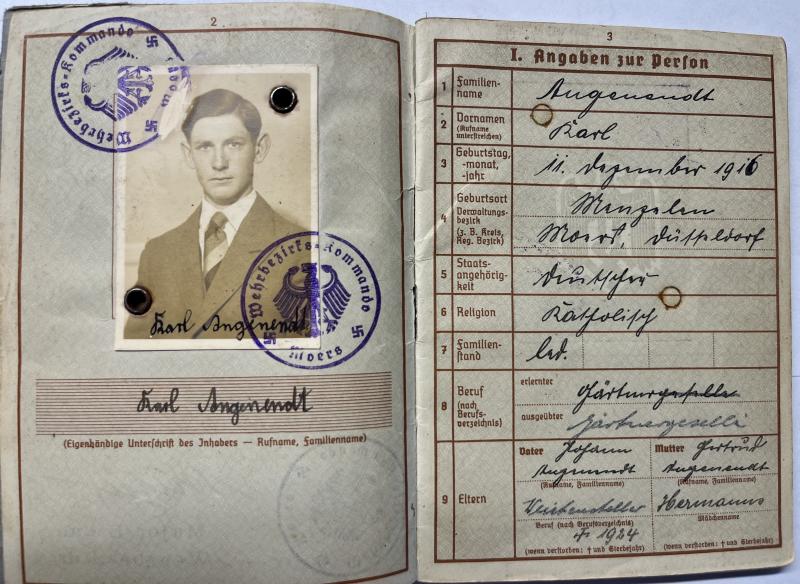 2
Wehrbezirks-Kommando
Moers
Wehrbezirks-Kommando
Moers
Karl Angenendt
Karl Angenendt
(Eigenhändige Unterschrift des Inhabers — Rufname, Familienname)
3
I. Angaben zur Person
1 Familien-
name
Angenendt
2 Vornamen
(Rufname
unterstreichen)
Karl
3 Geburtstag,
-monat,
-jahr
11. Dezember 1916
4 Geburtsort
Verwaltungs-
bezirk
(z. B. Kreis,
Reg. Bezirk)
Menzelen
Moers, Düsseldorf
5 Staats-
angehörig-
keit
Deutscher
6 Religion
Katholisch
7 Familien-
stand
led.
8 Beruf
(nach
Berufs-
verzeichnis)
erlernter Gärtnergeselle
ausgeübter Gärtnergeselle
9 Eltern
Vater Johann
Angenendt
(Rufname, Familienname)
Weichensteller
Beruf (nach Berufsverzeichnis)
† 1924
(wenn verstorben: † und Sterbejahr)
Mutter Gertrud
Angenendt
(Rufname, Familienname)
Hermanns
Mädchenname
(wenn verstorben: † und Sterbejahr)